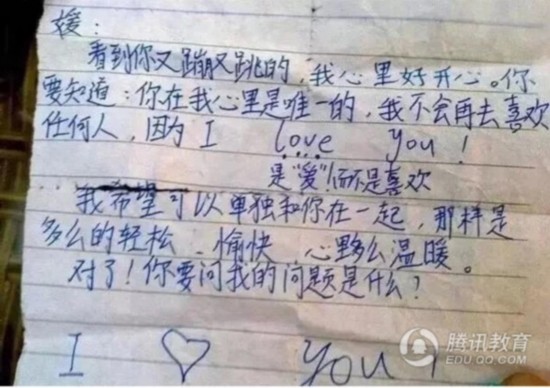 媛：
看到你又蹦又跳的，我心里好开心。你
要知道：你在我心里是唯一的，我不会再去喜欢
任何人，因为 I love you！
是“爱”！而不是喜欢
我希望可以单独和你在一起，那样是
多么的轻松、愉快、心多么温暖。
对了！你要问我的问题是什么？
I ♡ you！
腾讯教育
EDU.QQ.COM